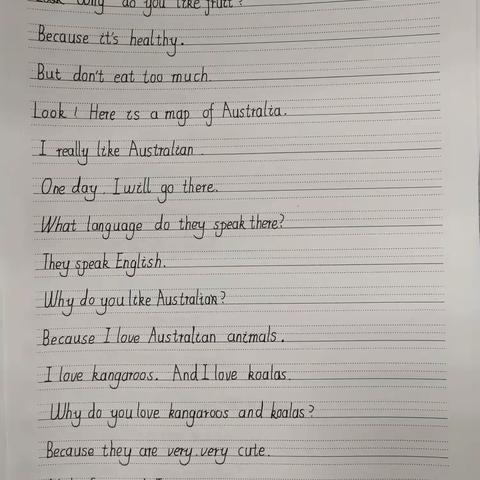 Why do you like fruit?
Because it's healthy.
But don't eat too much.
Look! Here is a map of Australia.
I really like Australian
One day. I will go there.
What language do they speak there?
They speak English.
Why do you like Australian?
Because I love Australian animals.
I love kangaroos. And I love koalas.
Why do you love kangaroos and koalas?
Because they are very.very cute.